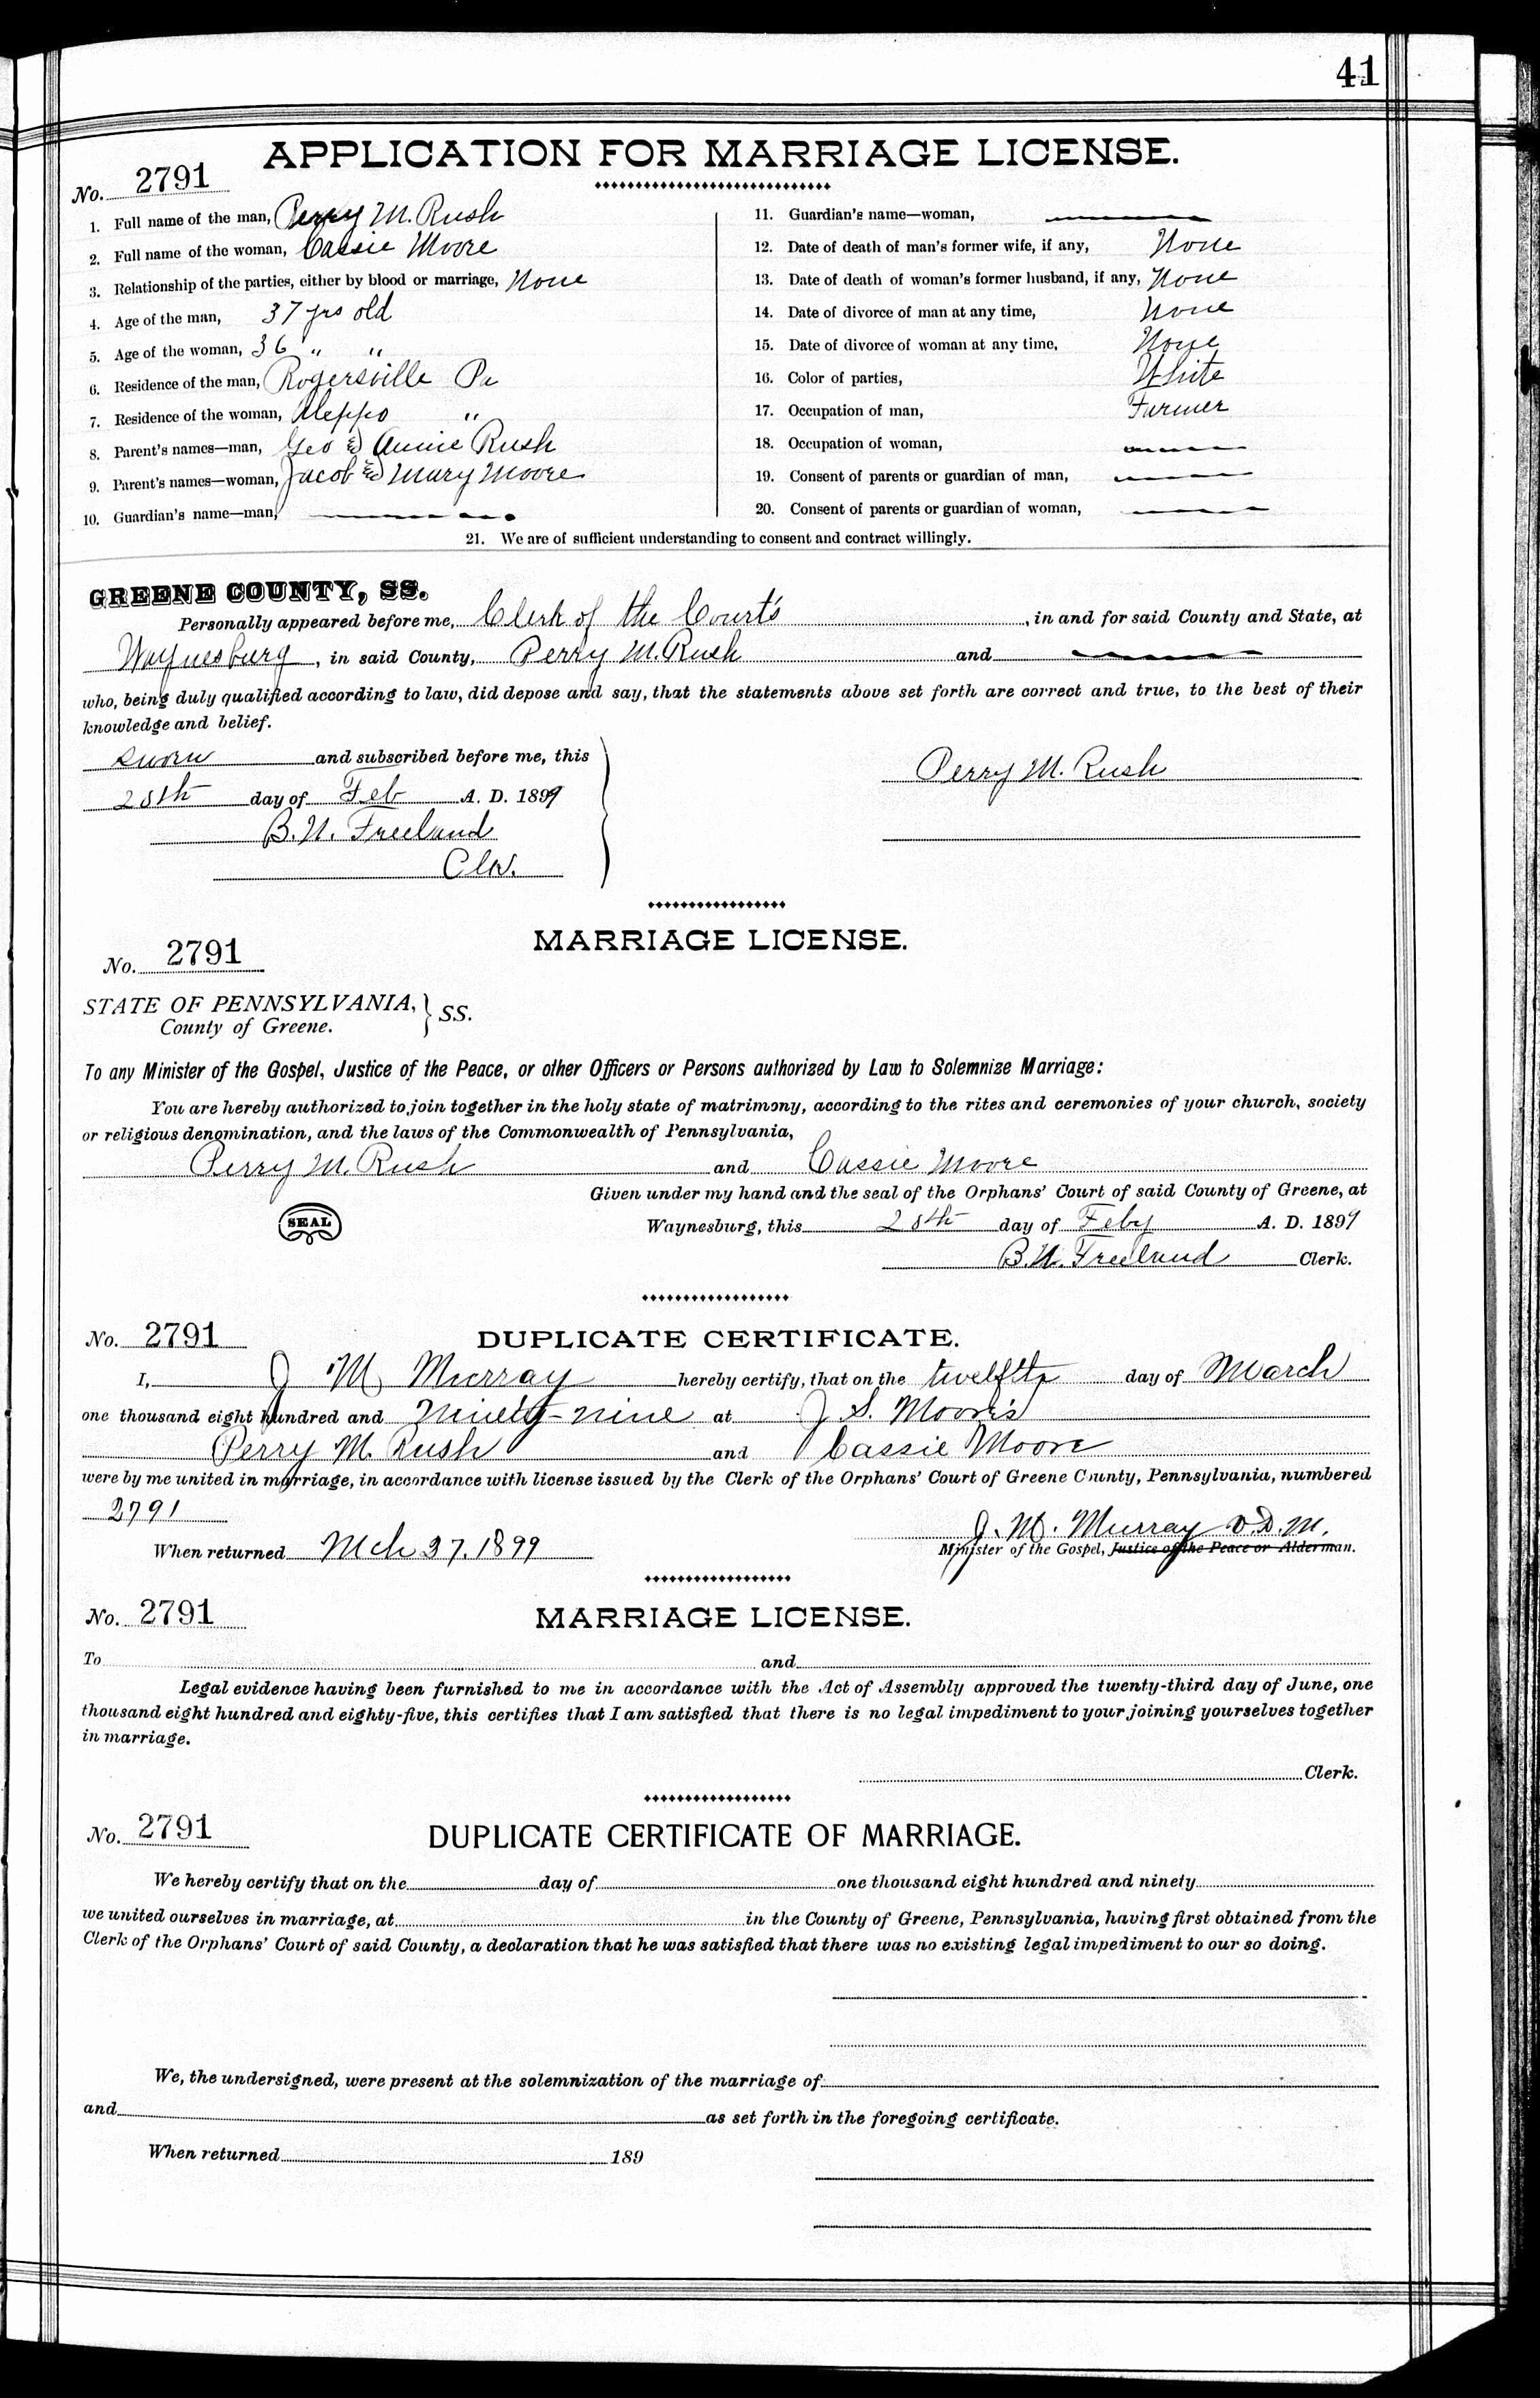 41
APPLICATION FOR MARRIAGE LICENSE.
No. 2791
1. Full name of the man, Perry M. Rush
2. Full name of the woman, Cassie Moore
3. Relationship of the parties, either by blood or marriage, None
4. Age of the man, 37 yrs old
5. Age of the woman, 36 " "
6. Residence of the man, Rogersville Pa
7. Residence of the woman, Aleppo "
8. Parent's names—man, Geo & Annie Rush
9. Parent's names—woman, Jacob & Mary Moore
10. Guardian's name—man,
11. Guardian's name—woman,
12. Date of death of man's former wife, if any, None
13. Date of death of woman's former husband, if any, None
14. Date of divorce of man at any time, None
15. Date of divorce of woman at any time, None
16. Color of parties, White
17. Occupation of man, Farmer
18. Occupation of woman,
19. Consent of parents or guardian of man,
20. Consent of parents or guardian of woman,
21. We are of sufficient understanding to consent and contract willingly.
GREENE COUNTY, SS.
Personally appeared before me, Clerk of the Court's, in and for said County and State, at
Waynesburg, in said County, Perry M. Rush and
who, being duly qualified according to law, did depose and say, that the statements above set forth are correct and true, to the best of their
knowledge and belief.
sworn and subscribed before me, this
28th day of Feb A. D. 1899
B. N. Freeland
Clk.
Perry M. Rush
MARRIAGE LICENSE.
No. 2791
STATE OF PENNSYLVANIA, } SS.
County of Greene.
To any Minister of the Gospel, Justice of the Peace, or other Officers or Persons authorized by Law to Solemnize Marriage:
You are hereby authorized to join together in the holy state of matrimony, according to the rites and ceremonies of your church, society
or religious denomination, and the laws of the Commonwealth of Pennsylvania,
Perry M. Rush and Cassie Moore
Given under my hand and the seal of the Orphans' Court of said County of Greene, at
SEAL
Waynesburg, this 28th day of Feby A. D. 1899
B. N. Freeland Clerk.
No. 2791 DUPLICATE CERTIFICATE.
I, J M Murray hereby certify, that on the twelfth day of March
one thousand eight hundred and Ninety-nine at J S. Moore's
Perry M. Rush and Cassie Moore
were by me united in marriage, in accordance with license issued by the Clerk of the Orphans' Court of Greene County, Pennsylvania, numbered
2791
J. M. Murray V. D. M.
When returned Mch 27, 1899
Minister of the Gospel, Justice of the Peace or Alderman.
No. 2791 MARRIAGE LICENSE.
To and
Legal evidence having been furnished to me in accordance with the Act of Assembly approved the twenty-third day of June, one
thousand eight hundred and eighty-five, this certifies that I am satisfied that there is no legal impediment to your joining yourselves together
in marriage.
Clerk.
No. 2791 DUPLICATE CERTIFICATE OF MARRIAGE.
We hereby certify that on the day of one thousand eight hundred and ninety
we united ourselves in marriage, at in the County of Greene, Pennsylvania, having first obtained from the
Clerk of the Orphans' Court of said County, a declaration that he was satisfied that there was no existing legal impediment to our so doing.
We, the undersigned, were present at the solemnization of the marriage of
and as set forth in the foregoing certificate.
When returned 189